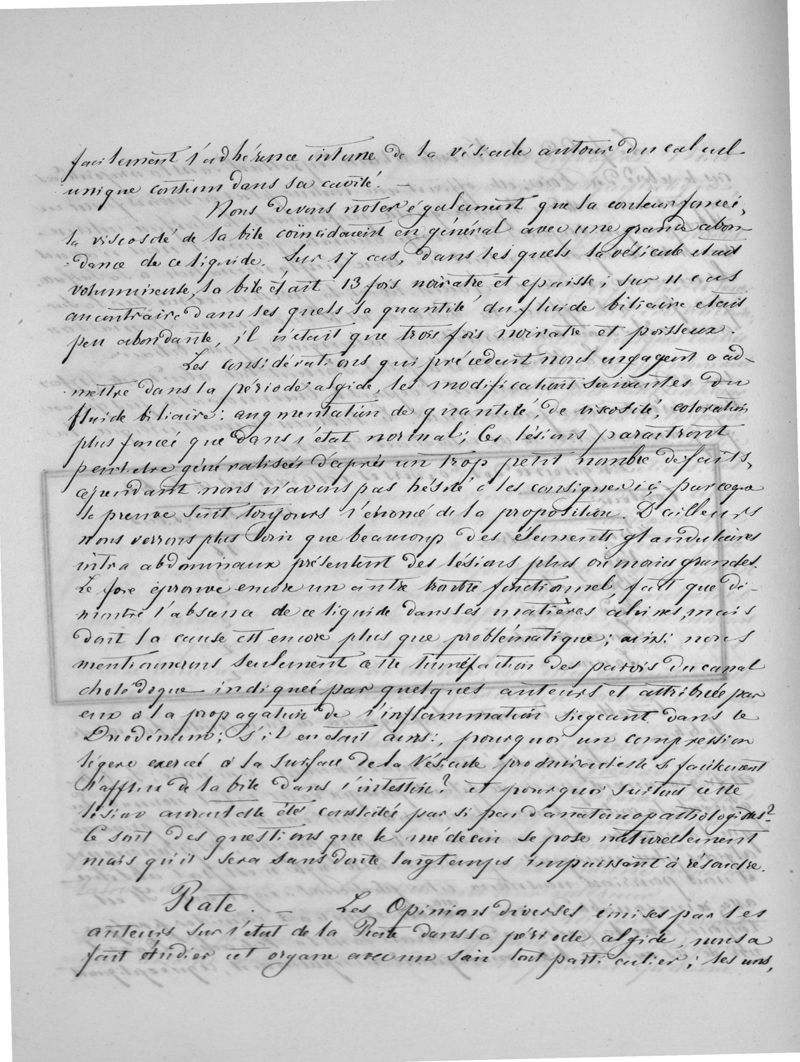 facilement l'adhérence intime de la vésicule autour du calcul
unique contenu dans sa cavité. —
Nous devons noter également que la couleur foncée,
la viscosité de la bile coïncidaient en général avec une grande abon-
dance de ce liquide. Sur 17 cas, dans les quels la vésicule était
volumineuse, la bile était 13 fois noirâtre et épaisse; sur 11 cas
au contraire dans les quels la quantité du fluide biliaire était
peu abondante, il n'était que trois fois noirâtre et poisseux.
Les considérations qui précèdent nous engagent à ad-
mettre dans la période algide, les modifications suivantes du
fluide biliaire: augmentation de quantité, de viscosité, coloration
plus foncée que dans l'état normal; Ces lésions paraîtront
peut être généralisées d'après un trop petit nombre de faits,
cependant nous n'avons pas hésité à les consigner ici parceque
la preuve suit toujours l'énoncé de la proposition. D'ailleurs
nous verrons plus loin que beaucoup des éléments glandulaires
intra abdominaux présentent des lésions plus ou moins grandes.
Le foie éprouve encore un autre trouble fonctionnel, fait que dé-
montre l'absence de ce liquide dans les matières alvines, mais
dont la cause est encore plus que problématique; ainsi nous
mentionnerons seulement cette tuméfaction des parois du canal
cholédoque indiquée par quelques auteurs et attribuée par
eux à la propagation de l'inflammation siégeant dans le
Duodénum; s'il en était ainsi, pourquoi un compression
légère exercée à la surface de la Vésicule produirait elle si facilement
l'afflux de la bile dans l'intestin? et pourquoi surtout cette
lésion aurait elle été constatée par si peu d'anatomopathologistes?
Ce sont des questions que le médecin se pose naturellement
mais qu'il sera sans doute longtemps impuissant à résoudre.
Rate. — Les Opinions diverses émises par les
auteurs sur l'état de la Rate dans la période algide, nous a
fait étudier cet organe avec un soin tout particulier; les uns,